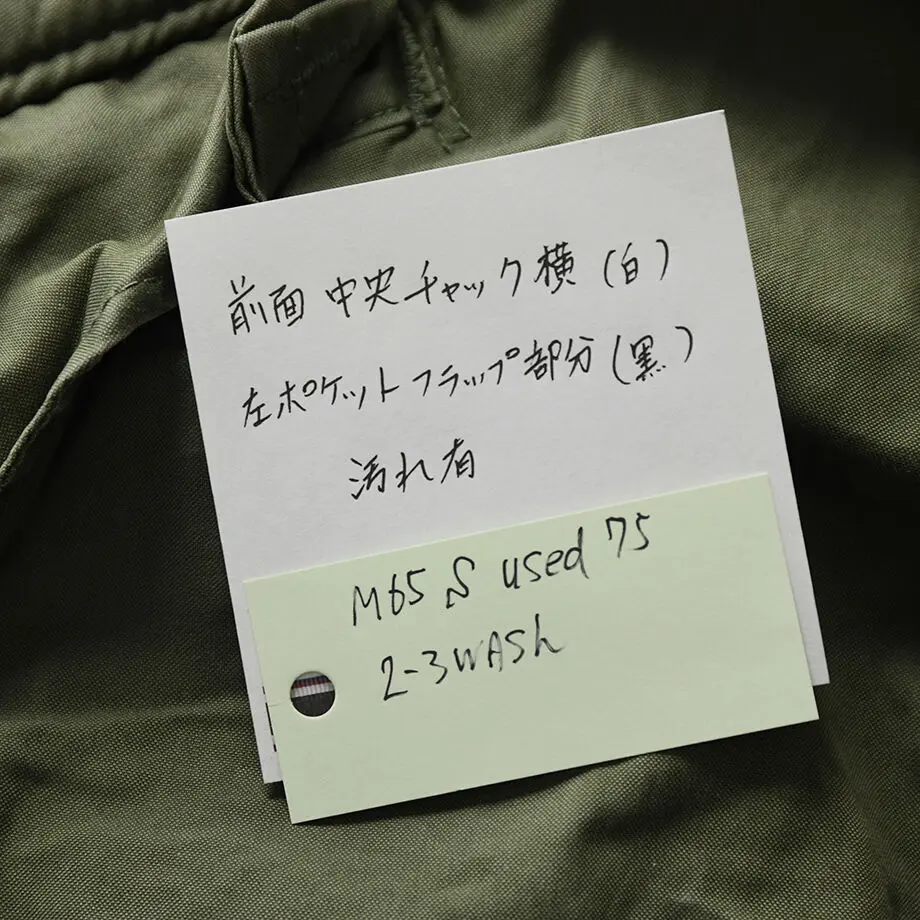 前面中央チャック横(白)
左ポケットフラップ部分(黒)
汚れ有
M65 S used 75
2-3WASh